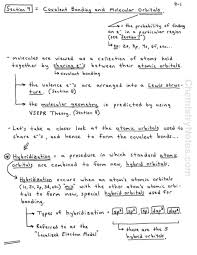 9-1
Section 9 - Covalent Bonding and Molecular Orbitals
the probability of finding
an e⁻ in a particular region
(see Section 7)
ex: 2s, 3p, 4s, 5f, etc...
- molecules are viewed as a collection of atoms held
together by sharing e⁻'s between their atomic orbitals
↳ covalent bonding
- the valence e⁻'s are arranged into a Lewis structure. (Section 8)
- the molecular geometry is predicted by using
VSEPR Theory. (Section 8)
- Let's take a closer look at the atomic orbitals used to
share e⁻'s, and hence to form the covalent bonds...
Hybridization - a procedure in which standard atomic
orbitals are combined to form new, hybrid orbitals.
- Hybridization occurs when an atom's atomic orbitals
mix with the other atom's atomic orbitals
to form new, special hybrid orbitals used for
bonding.
↳ Types of hybridization = sp sp² sp³
↳ Referred to as the
"Localized Electron Model"
these are the 5
hybrid orbitals
ChemistryNotes